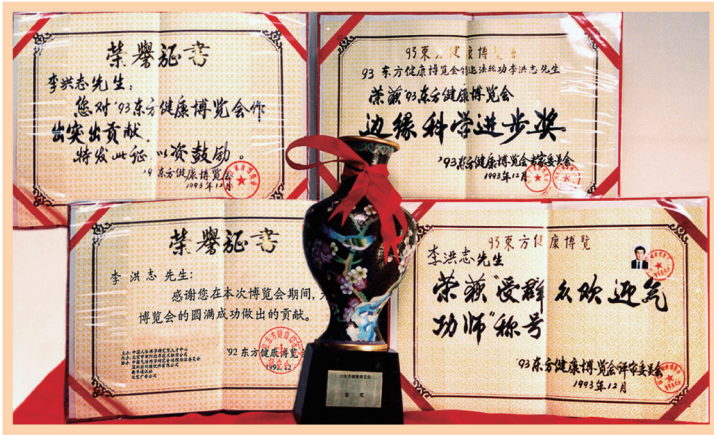 荣誉证书
李洪志先生:
您对'93东方健康博览会作
出突出贡献.
特发此证,以资鼓励。
'93东方健康博览会
1993年12月
93東方健康博览會
93东方健康博览会特邀法轮功李洪志先生
荣获'93东方健康博览会
边缘科学进步奖
'93东方健康博览会专家委员会
1993年12月
荣誉证书
李洪志 先生:
感谢您在本次博览会期间,
博览会的圆满成功做出的贡献。
'92东方健康博览
1992.12
93東方健康博览
李洪志先生
荣获"受群众欢迎气
功师"称号
'93东方健康博览会评审委员会
1993年12月